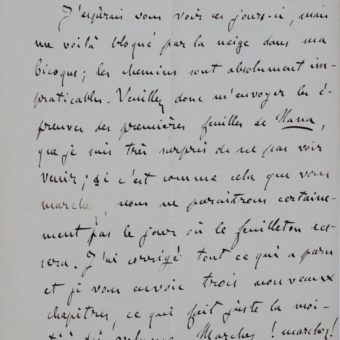 J'espérais vous voir ces jours-ci, mais
me voilà bloqué par la neige dans ma
bicoque; les chemins sont absolument im-
praticables. Veuillez donc m'envoyer les é-
preuves des premières feuilles de Nana,
que je suis très surpris de ne pas voir
venir; si c'est comme cela que vous
marchez, nous ne paraîtrons certaine-
ment pas le jour où le feuilleton ces-
sera. J'ai corrigé tout ce qui a paru
et je vous envoie trois nouveaux
chapitres, ce qui fait juste la moi-
tié du volume. Marchez! marchez!